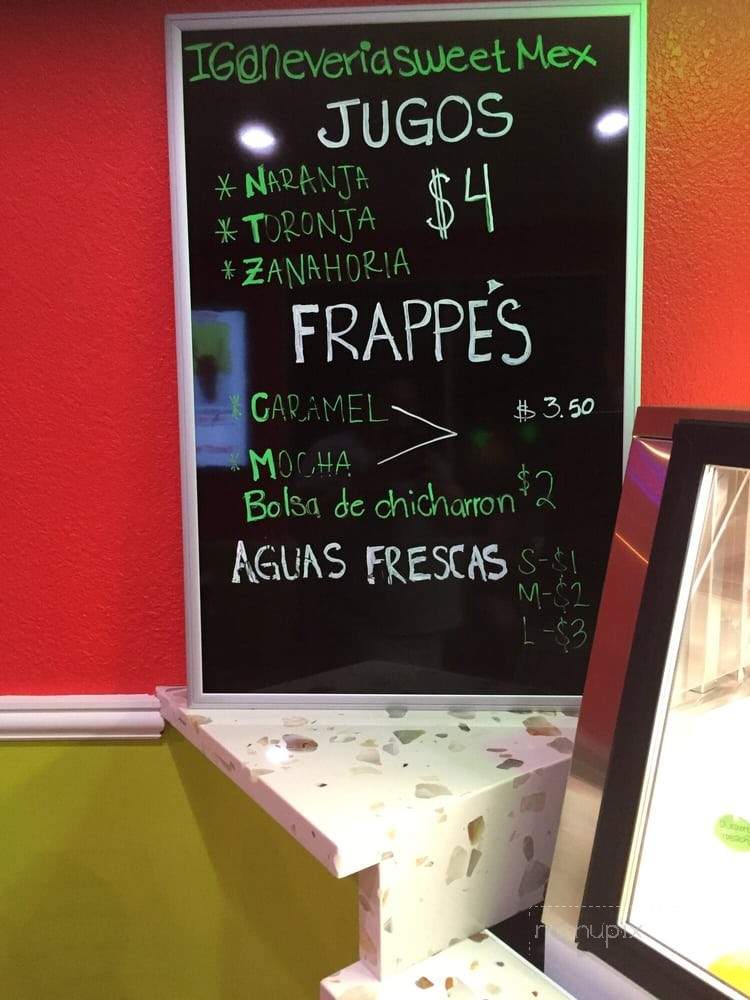 IG@neveriasweetMex
JUGOS
* NARANJA $4
* TORONJA
* ZANAHORIA
FRAPPÉS
* CARAMEL $3.50
* MOCHA
Bolsa de chicharron $2
AGUAS FRESCAS S-$1
M-$2
L-$3
menupix